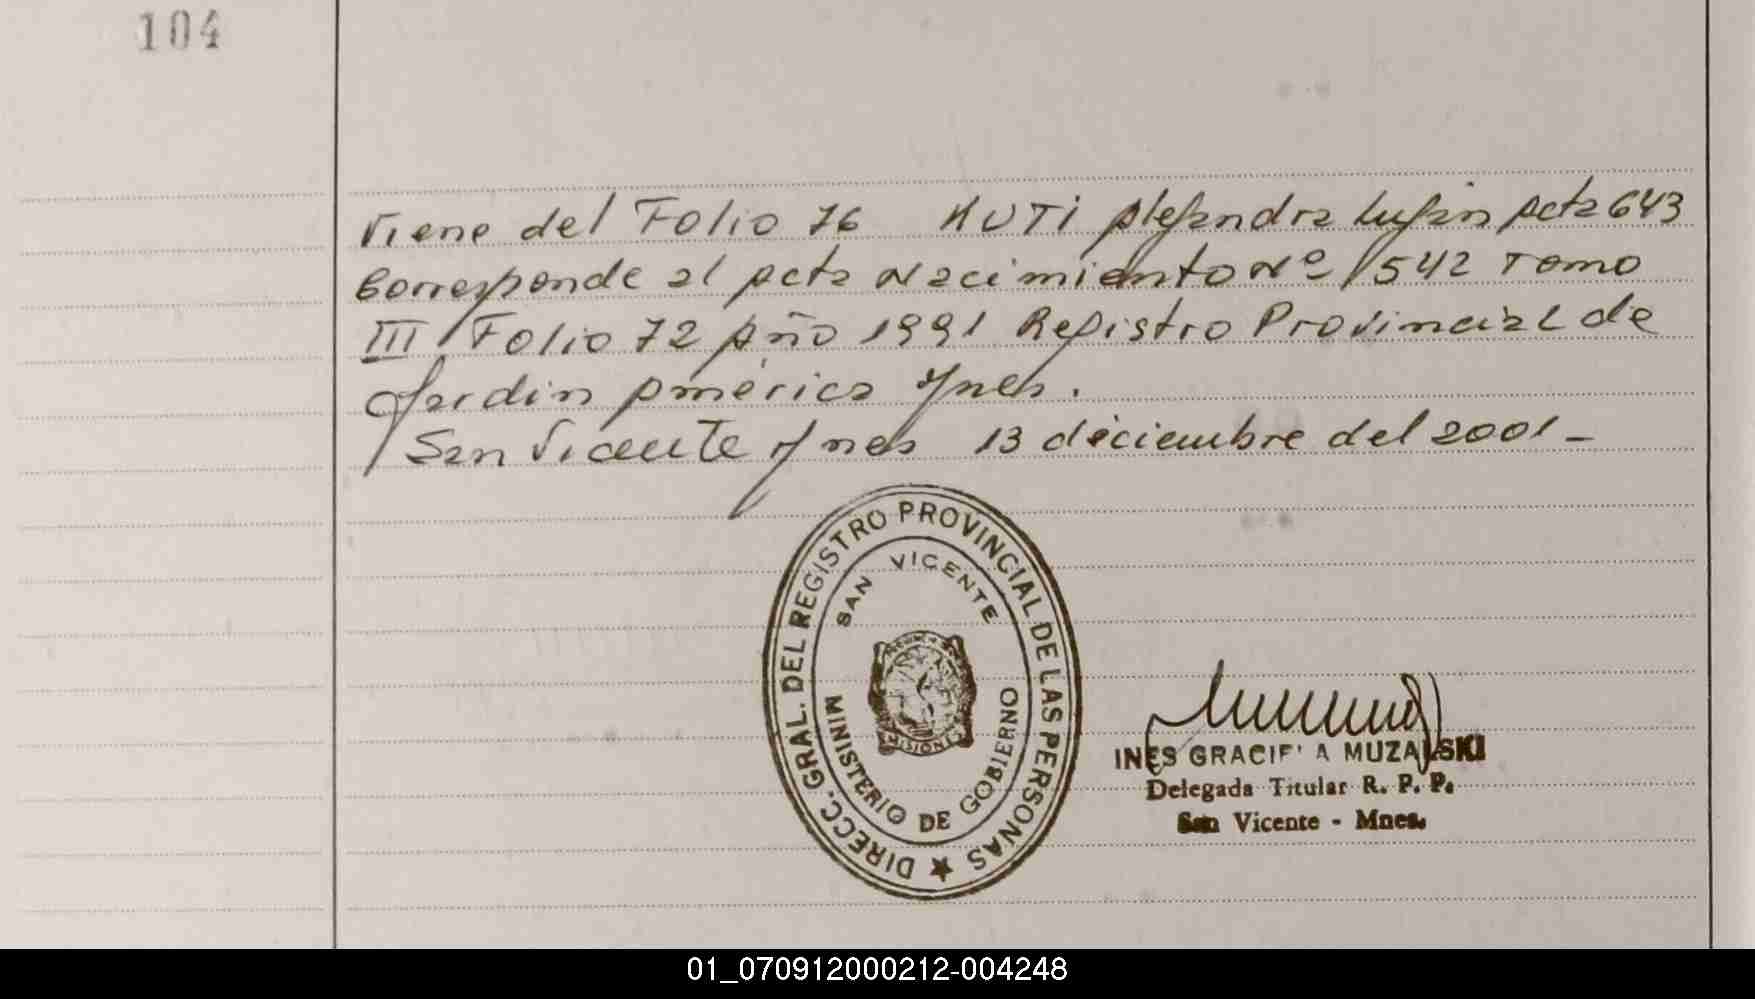 104
Viene del Folio 76 HUTi Alejandra Luján Acta 643
Corresponde al Acta Nacimiento Nº 1542 Tomo
III Folio 72 Año 1991 Registro Provincial de
Jardin América Mnes.
San Vicente Mnes 13 diciembre del 2001-
DIRECC. GRAL. DEL REGISTRO PROVINCIAL DE LAS PERSONAS ★
SAN VICENTE
MISIONES
MINISTERIO DE GOBIERNO
INES GRACIE' A MUZALSKI
Delegada Titular R. P. P.
San Vicente - Mnes.
01_070912000212-004248